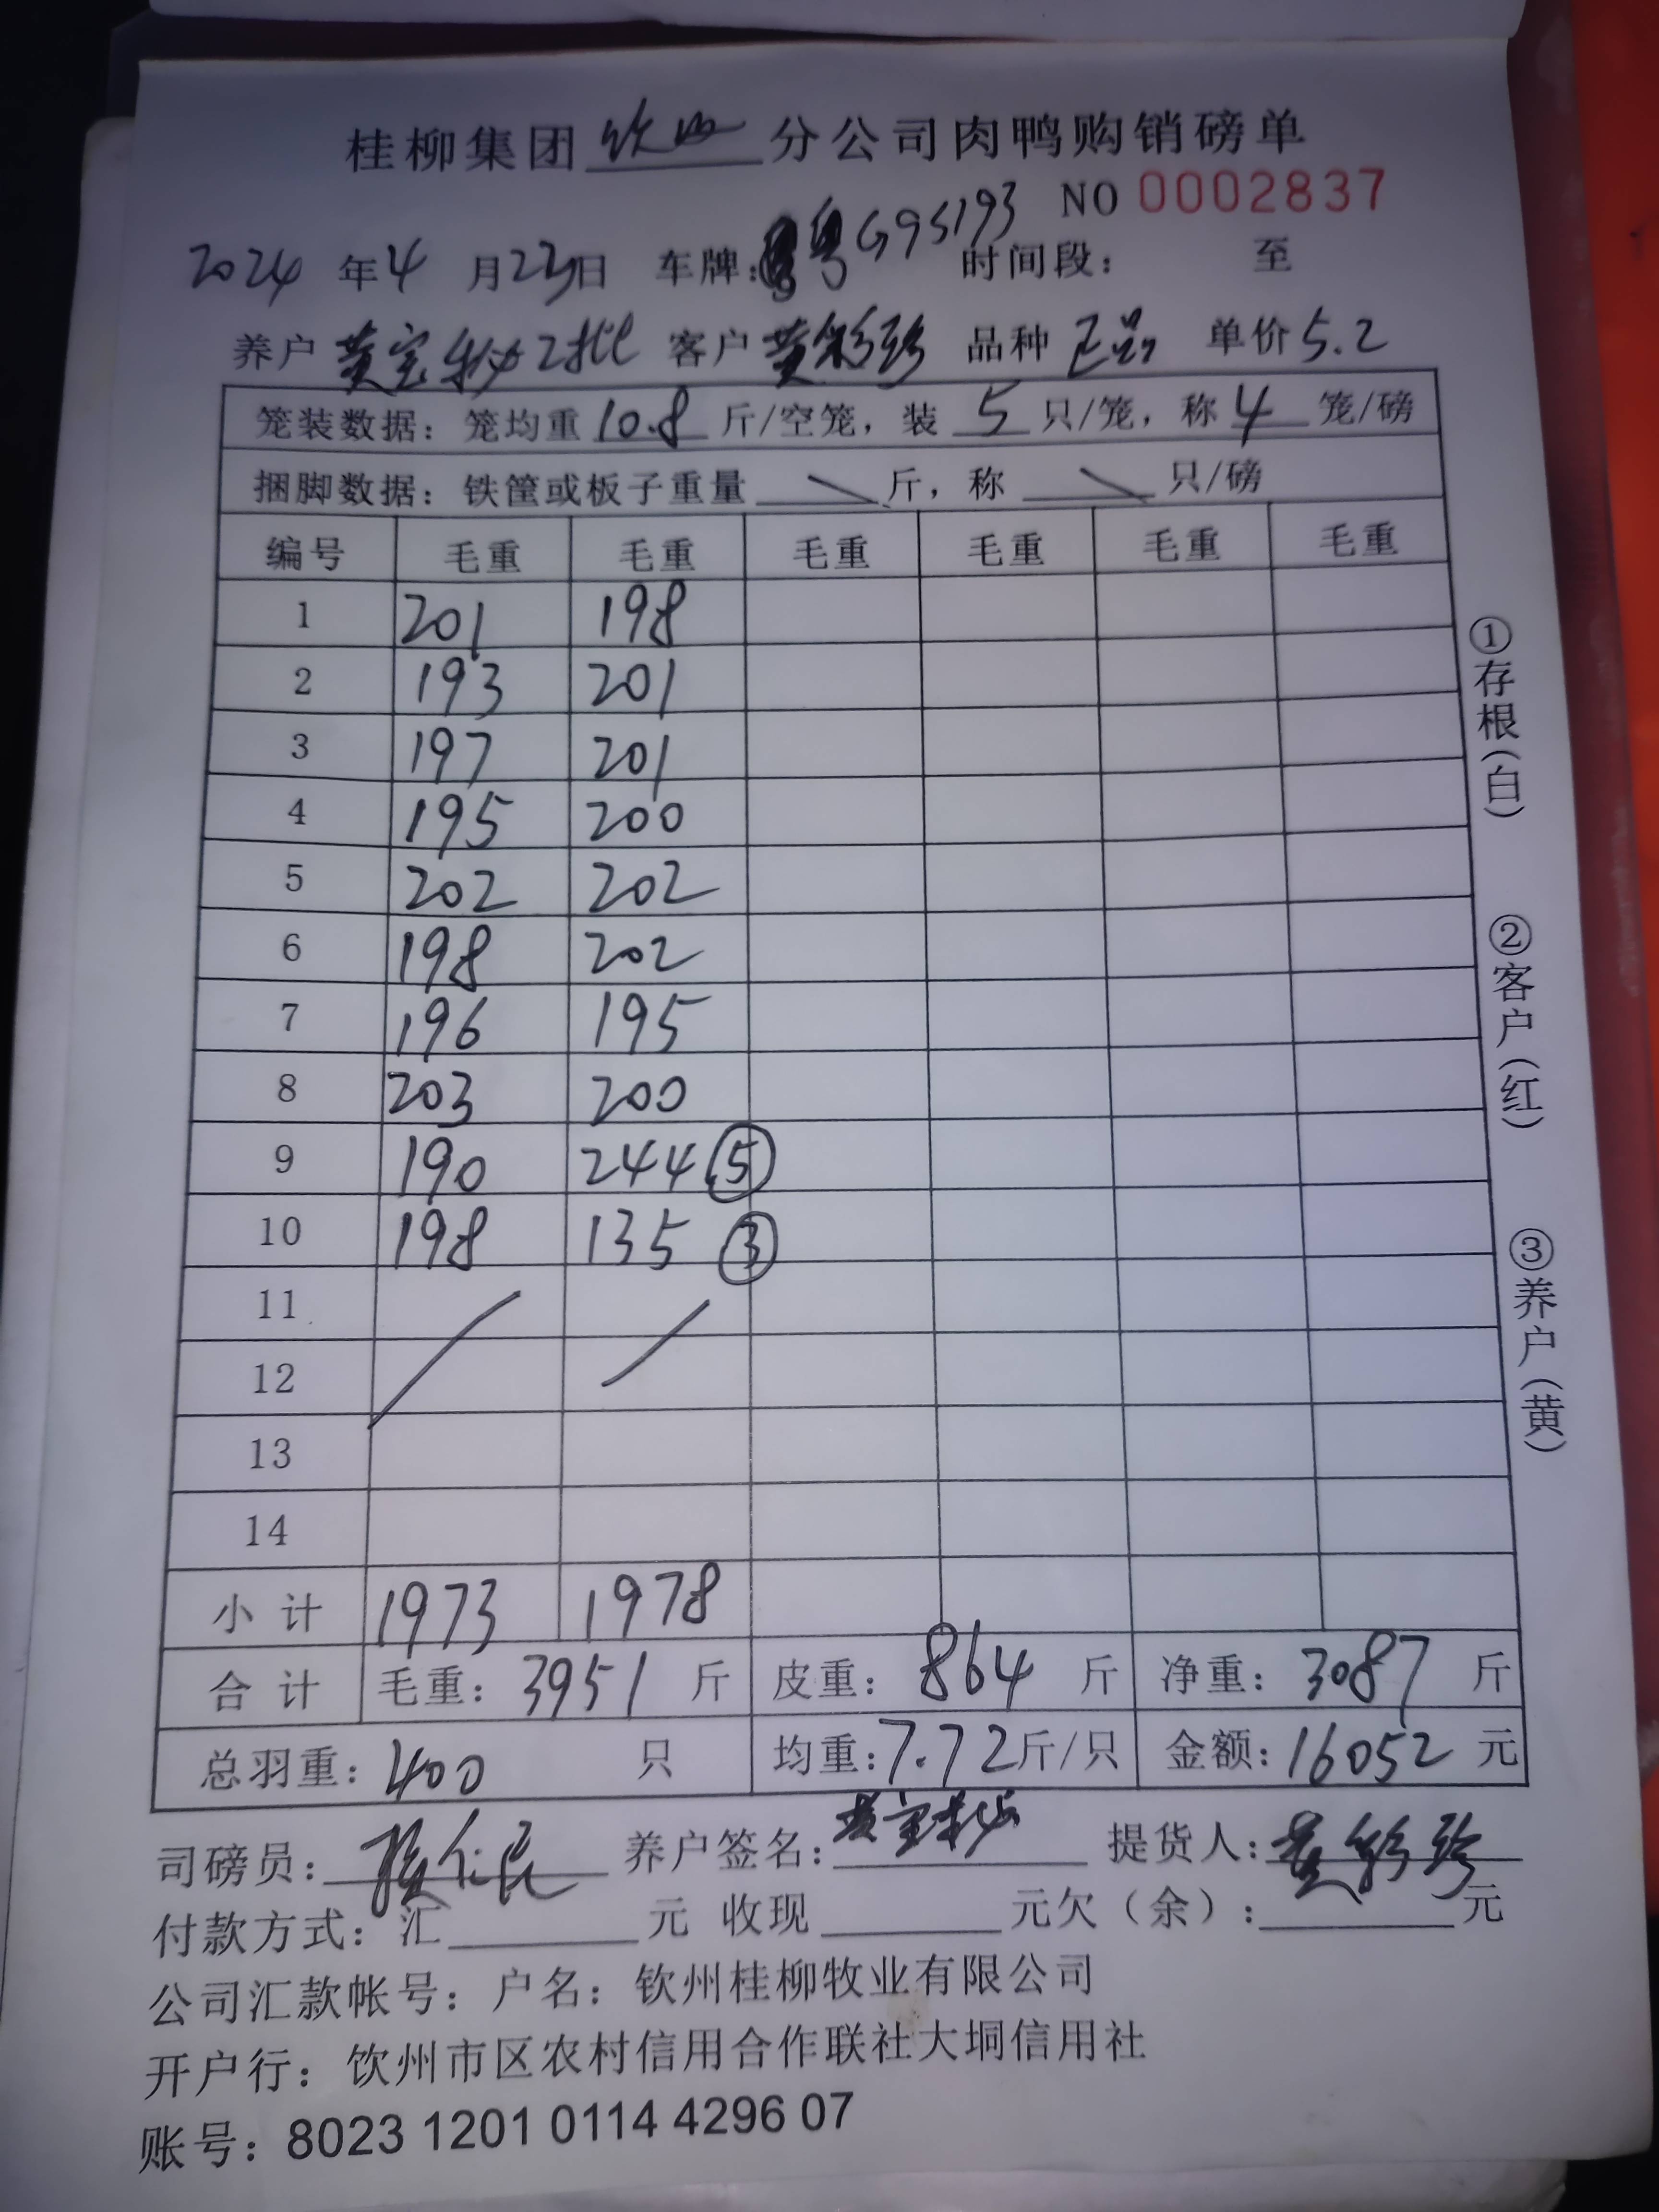 桂柳集团 钦州 分公司肉鸭购销磅单
NO 0002837
2024 年 4 月 23 日 车牌: 粤G95193 时间段: 至
养户 黄宝秘2批 客户 黄彩珍 品种 正品 单价 5.2
笼装数据: 笼均重 10.8 斤/空笼, 装 5 只/笼, 称 4 笼/磅
捆脚数据: 铁筐或板子重量 斤, 称 只/磅
编号 毛重 毛重 毛重 毛重 毛重 毛重
1 201 198
2 193 201
3 197 201
4 195 200
5 202 202
6 198 202
7 196 195
8 203 200
9 190 244 ⑤
10 198 135 ③
11
12
13
14
小计 1973 1978
合计 毛重: 3951 斤 皮重: 864 斤 净重: 3087 斤
总羽重: 400 只 均重: 7.72 斤/只 金额: 16052 元
司磅员: 养户签名: 黄宝秘 提货人: 黄彩珍
付款方式: 汇 元 收现 元欠（余）: 元
公司汇款帐号: 户名: 钦州桂柳牧业有限公司
开户行: 钦州市区农村信用合作联社大垌信用社
账号: 8023 1201 0114 4296 07
①存根(白)
②客户(红)
③养户(黄)